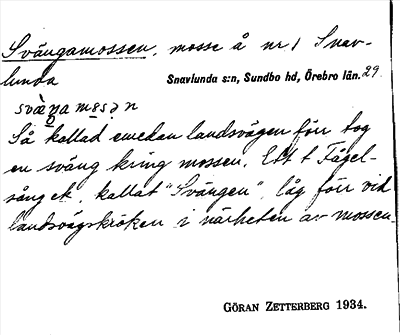 Svängamossen, mosse å nr 1 Snav-
lunda Snavlunda s:n, Sundbo hd, Örebro län. 29.
svæŋa mɵsən
Så kallad emedan landsvägen förr tog
en sväng kring mossen. Ett t Fågel-
sång ek. kallat "Svängen", låg förr vid
landsvägskröken i närheten av mossen.
GÖRAN ZETTERBERG 1934.